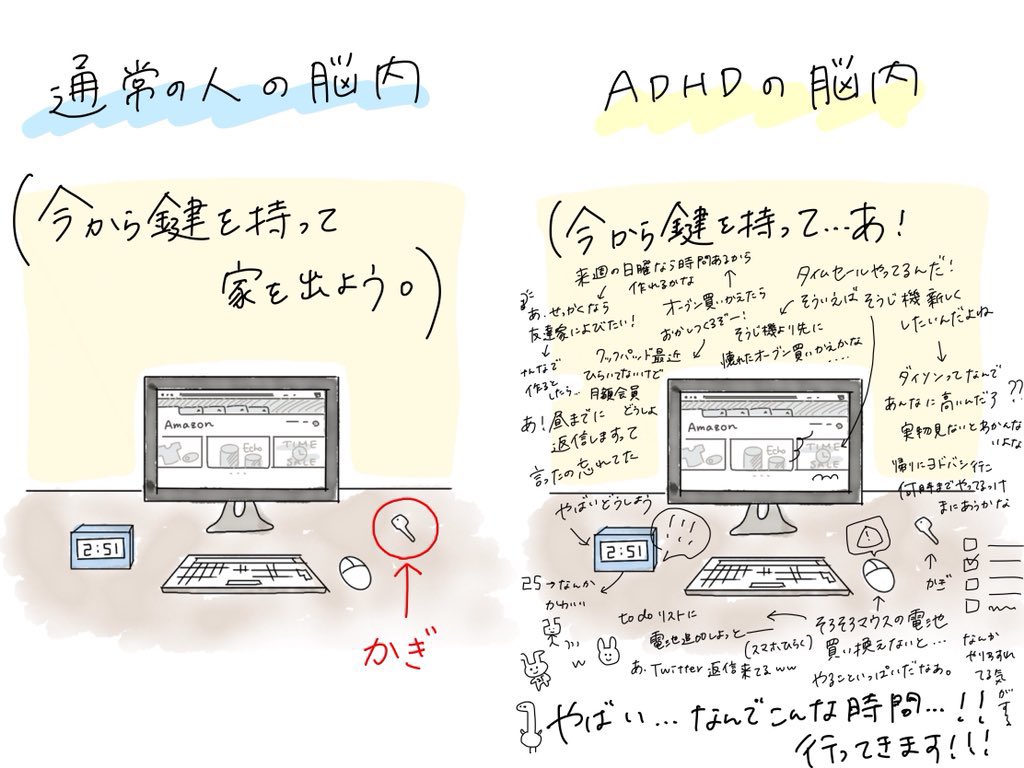 通常の人の脳内
(今から鍵を持って
家を出よう。)
Amazon
Echo
TIME
SALE
2:51
かぎ
ADHDの脳内
(今から鍵を持って…あ!
タイムセールやってるんだ!
そういえばそうじ機新しく
したいんだよね
ダイソンってなんで
あんなに高いんだろ??
実物見ないとあかんな
いよな
帰りにヨドバシ行こ
何時までやってるっけ
まにあうかな
そうじ機より先に
壊れたオーブン買いかえかな
....
オーブン買いかえたら
おかしつくるぞー!
来週の日曜なら時間あるから
作れるかな
あ、せっかくなら
友達家によびたい!
みんなで
作ると
したら…
クックパッド最近
ひらいてないけど
月額会員
どうしよ
あ!昼までに
返信しますって
言ったの忘れてた
やばいどうしよう
Amazon
Echo
TIME
SALE
2:51
!!!
!
25→なんか
かわいい
25
w
かぎ
そろそろマウスの電池
買い換えないと…
やることいっぱいだなあ。
to doリストに
電池追加しよっと
(スマホひらく)
あ、Twitter返信来てるww
なんか
やりわすれ
てる気
がする
やばい…なんでこんな時間…!!
行ってきます!!!